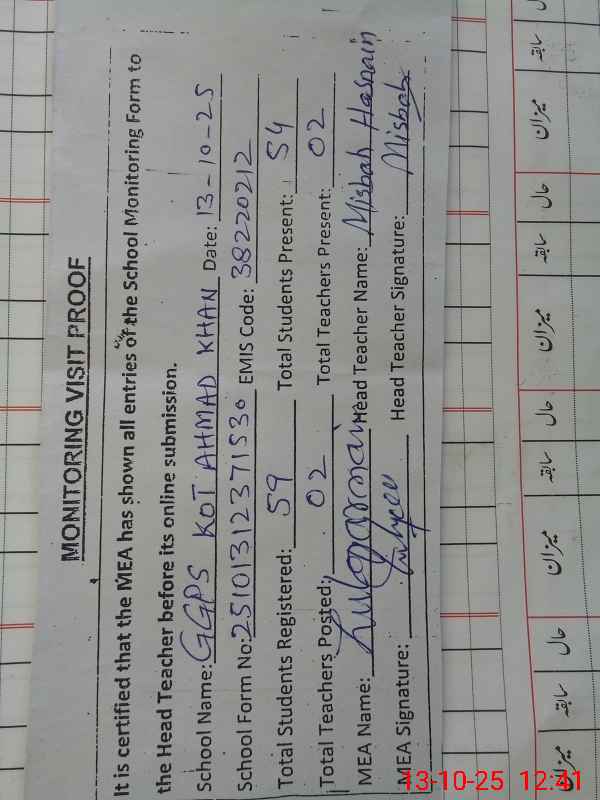 MONITORING VISIT PROOF
It is certified that the MEA has shown all entries of the School Monitoring Form to
the Head Teacher before its online submission.
School Name: GGPS KOT AHMAD KHAN Date: 13-10-25
School Form No: 2510131237 1530 EMIS Code: 38220212
Total Students Registered: 59 Total Students Present: 54
Total Teachers Posted: 02 Total Teachers Present: 02
MEA Name: Head Teacher Name: Misbah Hasnain
MEA Signature: Head Teacher Signature: Misbah
میزان سابقہ حال میزان سابقہ حال میزان سابقہ حال میزان سابقہ
13-10-25 12:41